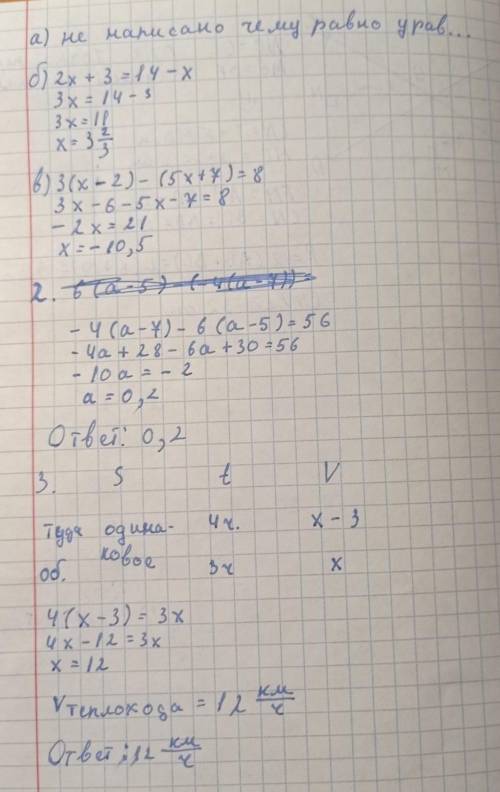 а) не написано чему равно урав...
б) 2x + 3 = 14 - x
3x = 14 - 3
3x = 11
x = 3 2/3
в) 3(x - 2) - (5x + 7) = 8
3x - 6 - 5x - 7 = 8
- 2x = 21
x = - 10,5
2. 6(a-5) (-4(a-7)) =
- 4(a-7) - 6(a-5) = 56
- 4a + 28 - 6a + 30 = 56
- 10a = - 2
a = 0,2
Ответ: 0,2
3. S t V
Туда одина- 4ч. x - 3
ковое
об. 3ч x
4(x-3) = 3x
4x - 12 = 3x
x = 12
Vтеплокода = 12 км/ч
Ответ: 12 км/ч